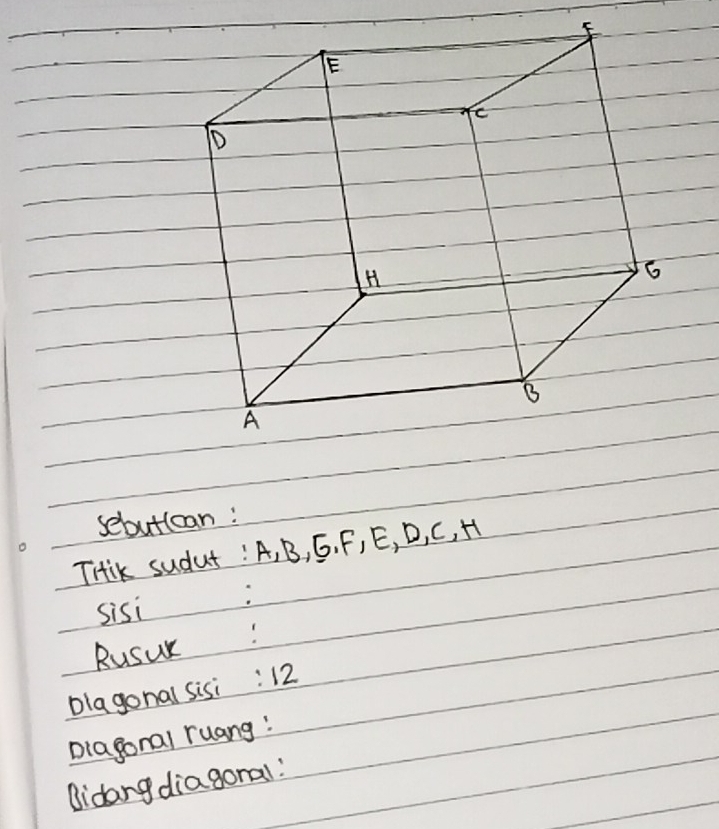 E F
D C
H G
A B
Sebutkan :
Titik sudut : A, B, G, F, E, D, C, H
Sisi :
Rusuk :
Diagonal sisi : 12
Diagonal ruang :
Bidang diagonal :